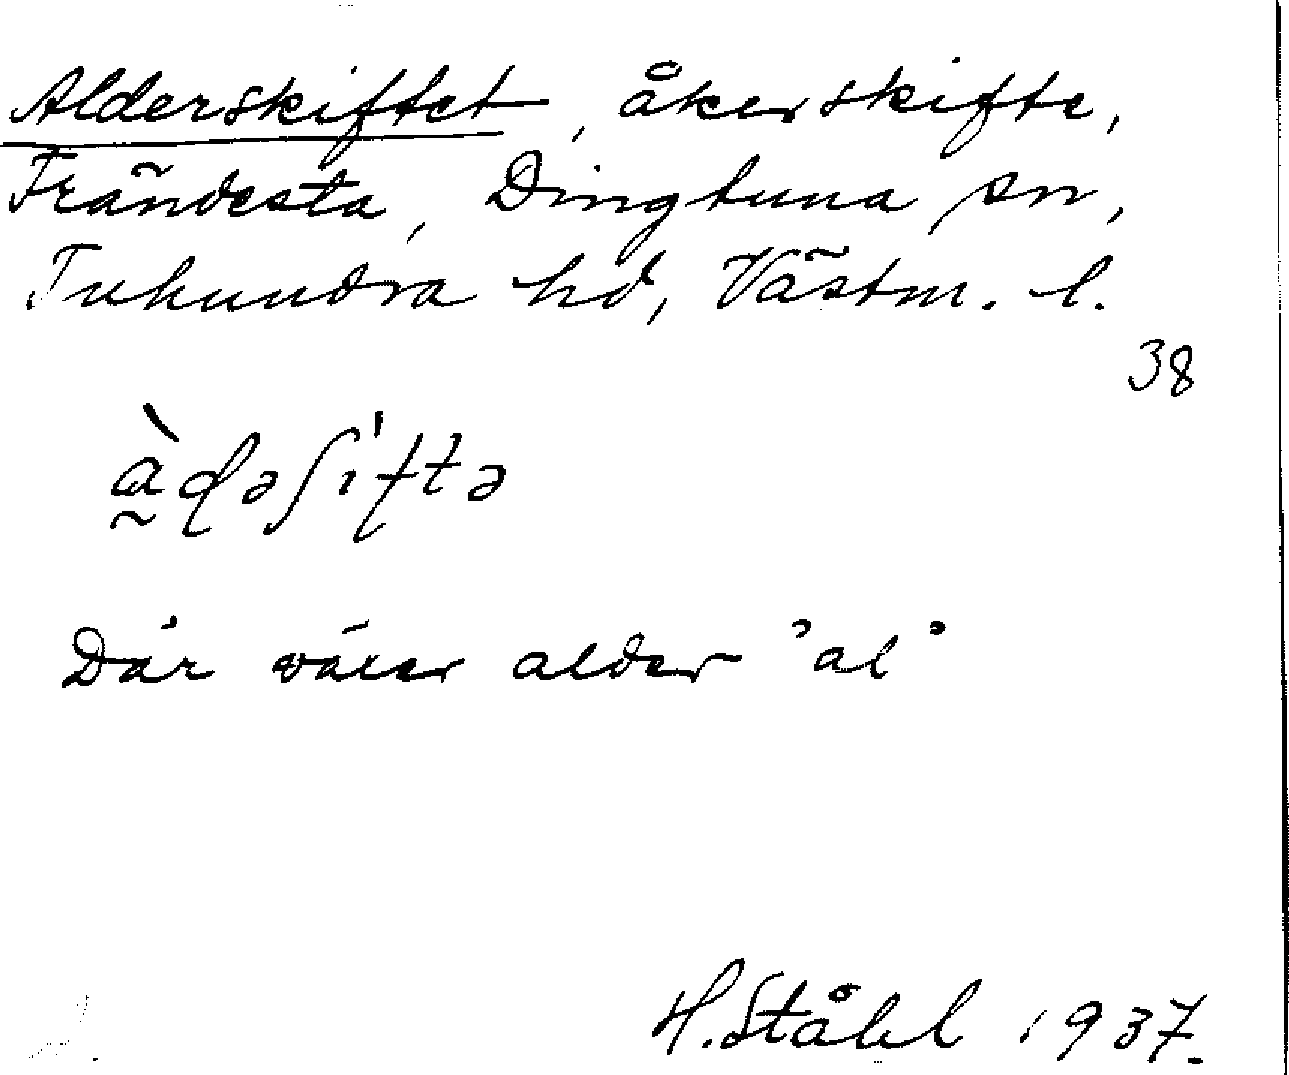 Alderskiftet, åkerskifte,
Frändesta, Dingtuna sn,
Tuhundra hd, Västm. l.
38
Där växer alder 'al'
H. Ståhl 1937.